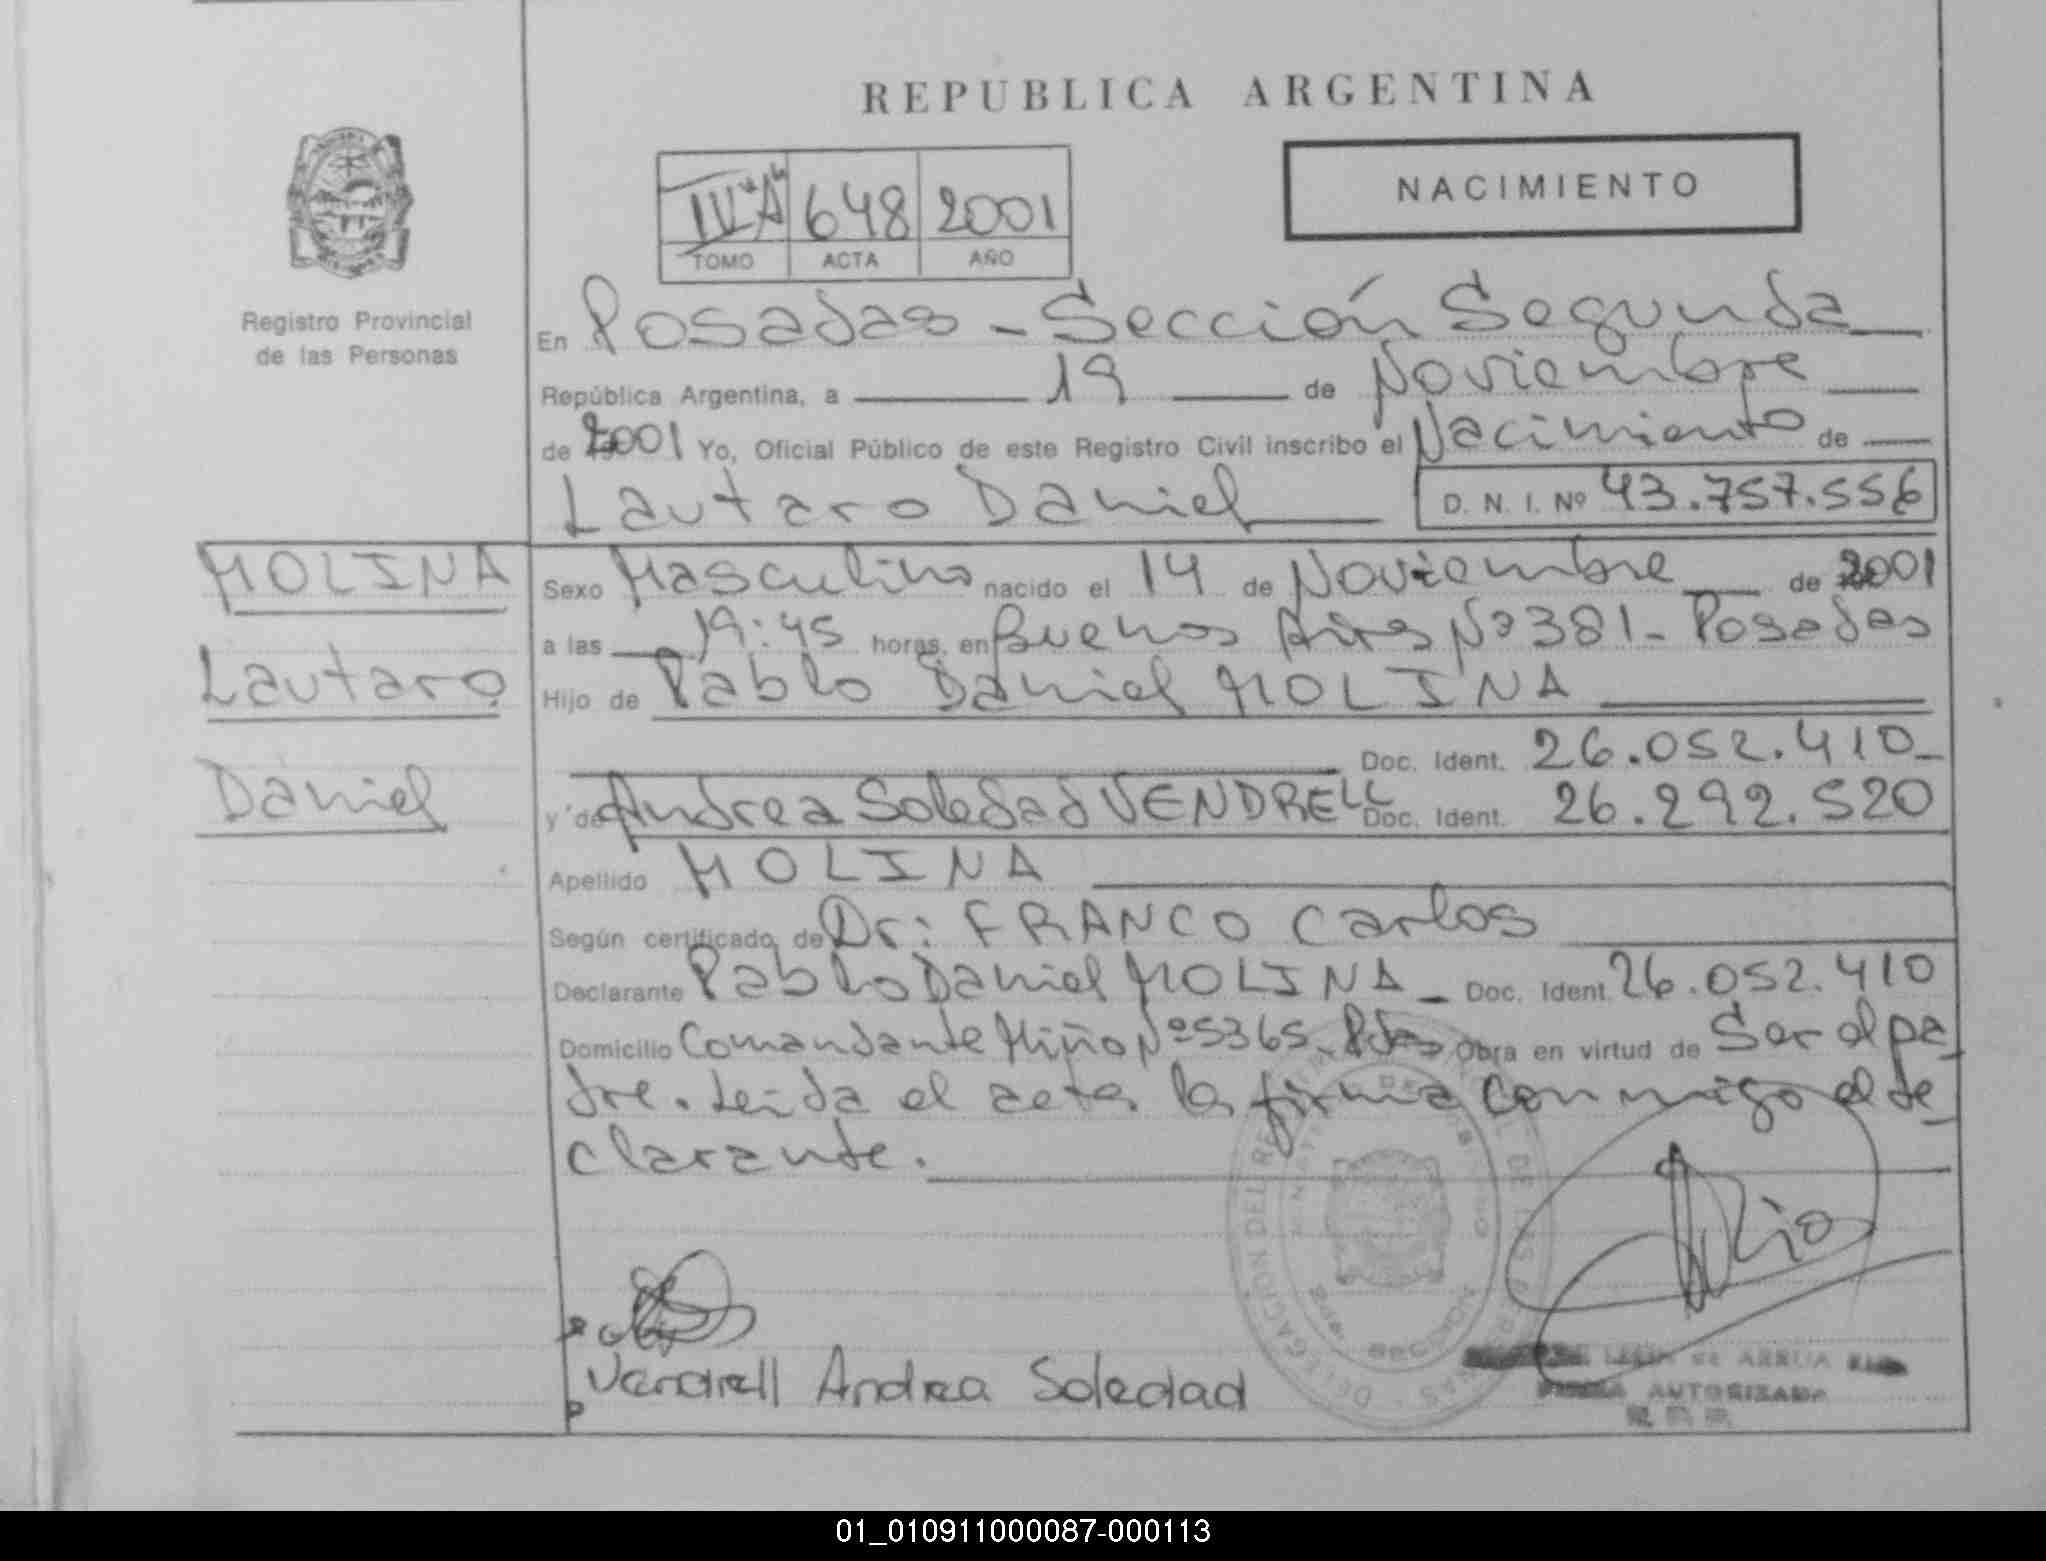 REPUBLICA ARGENTINA
NACIMIENTO
648 2001
TOMO ACTA AÑO
Registro Provincial
de las Personas
En Posadas - Sección Segunda
República Argentina, a 19 de Noviembre
de 2001 Yo, Oficial Público de este Registro Civil inscribo el Nacimiento de
Lautaro Daniel D. N. I. Nº 43.757.556
MOLINA
Lautaro
Daniel
Sexo Masculino nacido el 14 de Noviembre de 2001
a las 19:45 horas, en Buenos Aires Nº 381 - Posadas
Hijo de Pablo Daniel MOLINA
Doc. Ident. 26.052.410-
y de Andrea Soledad VENDRELL Doc. Ident. 26.292.520
Apellido MOLINA
Según certificado de Dr: FRANCO Carlos
Declarante Pablo Daniel MOLINA - Doc. Ident. 26.052.410
Domicilio Comandante Miño Nº 5365 - Pdas Obra en virtud de Ser el pa-
dre. Leída el acta la firma conmigo el de-
clarante.
Vendrell Andrea Soledad
DE ARRUA
AUTORIZADA
01_010911000087-000113